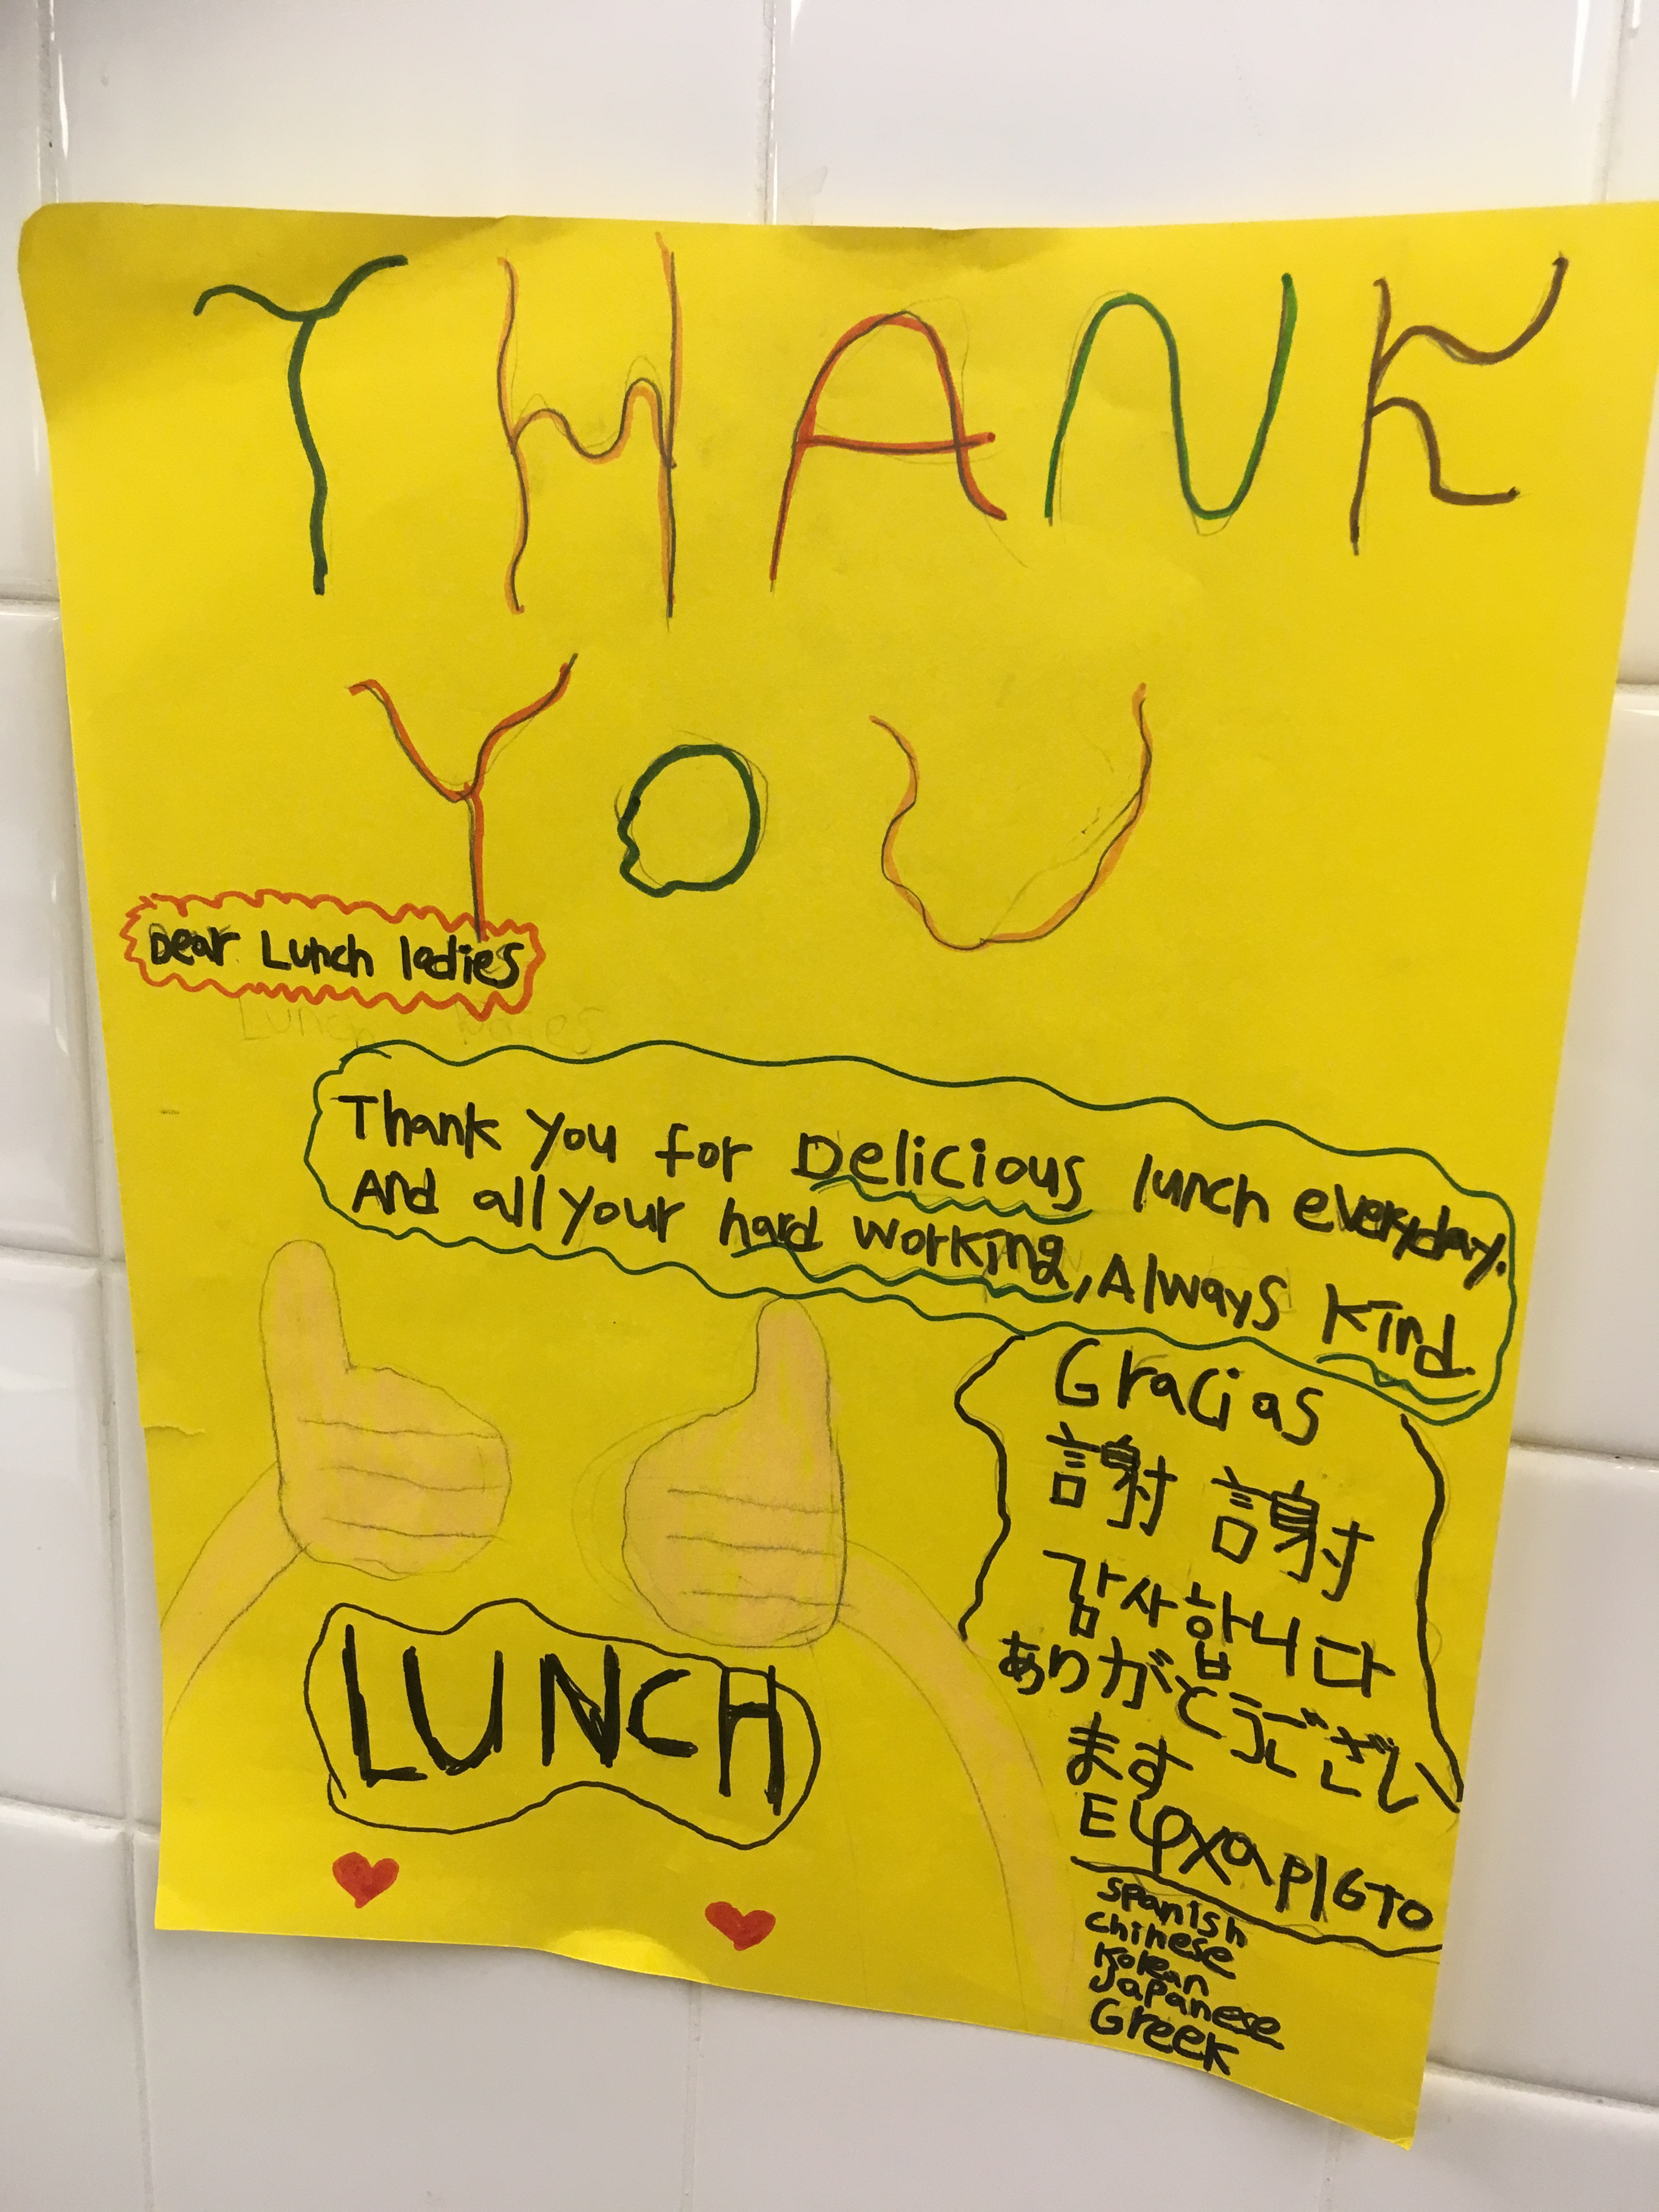 THANK
YOU
Dear Lunch ladies
Thank you for Delicious lunch everyday.
And all your hard working, Always kind.
Gracias
謝謝
감사합니다
ありがとうござい
ます
Eφχαρ|στο
LUNCH
Spanish
Chinese
Korean
Japanese
Greek